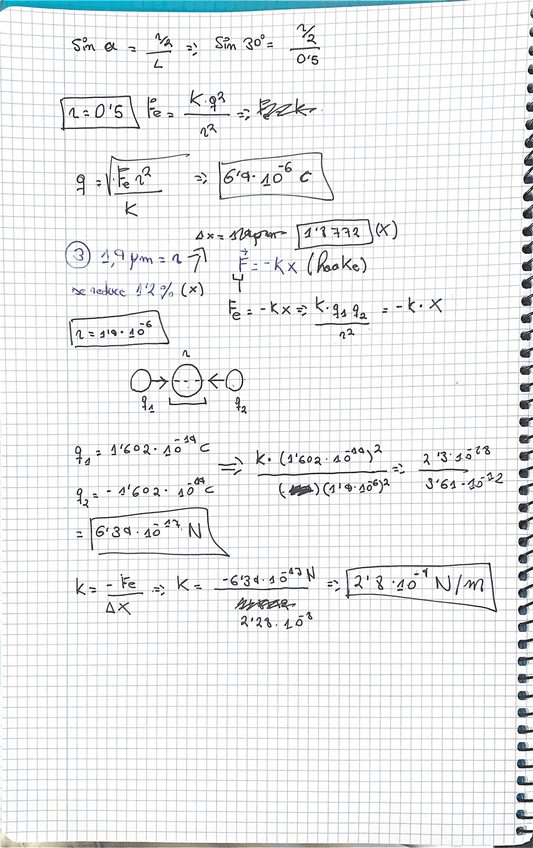 Sin α = r/2 / L => Sin 30° = r/2 / 0'5
r = 0'5 Fe = K·q² / r² =>
q = √(Fe r² / K) => 6'9·10⁻⁶ C
Δx = 1'8772 (X)
③ 1,9 μm = r F = -Kx (hooke)
se reduce 1'2% (x)
Fe = -Kx => K·q₁q₂ / r² = -K·X
r = 1'9·10⁻⁶
r
q₁ q₂
q₁ = 1'602·10⁻¹⁹ C => K·(1'602·10⁻¹⁹)² / (1'9·10⁻⁶)² => 2'3·10⁻²⁸ / 3'61·10⁻¹²
q₂ = -1'602·10⁻¹⁹ C
= 6'39·10⁻¹⁷ N
K = -Fe / ΔX => K = -6'39·10⁻¹⁷ N / 2'28·10⁻⁸ => 2'8·10⁻⁹ N/m